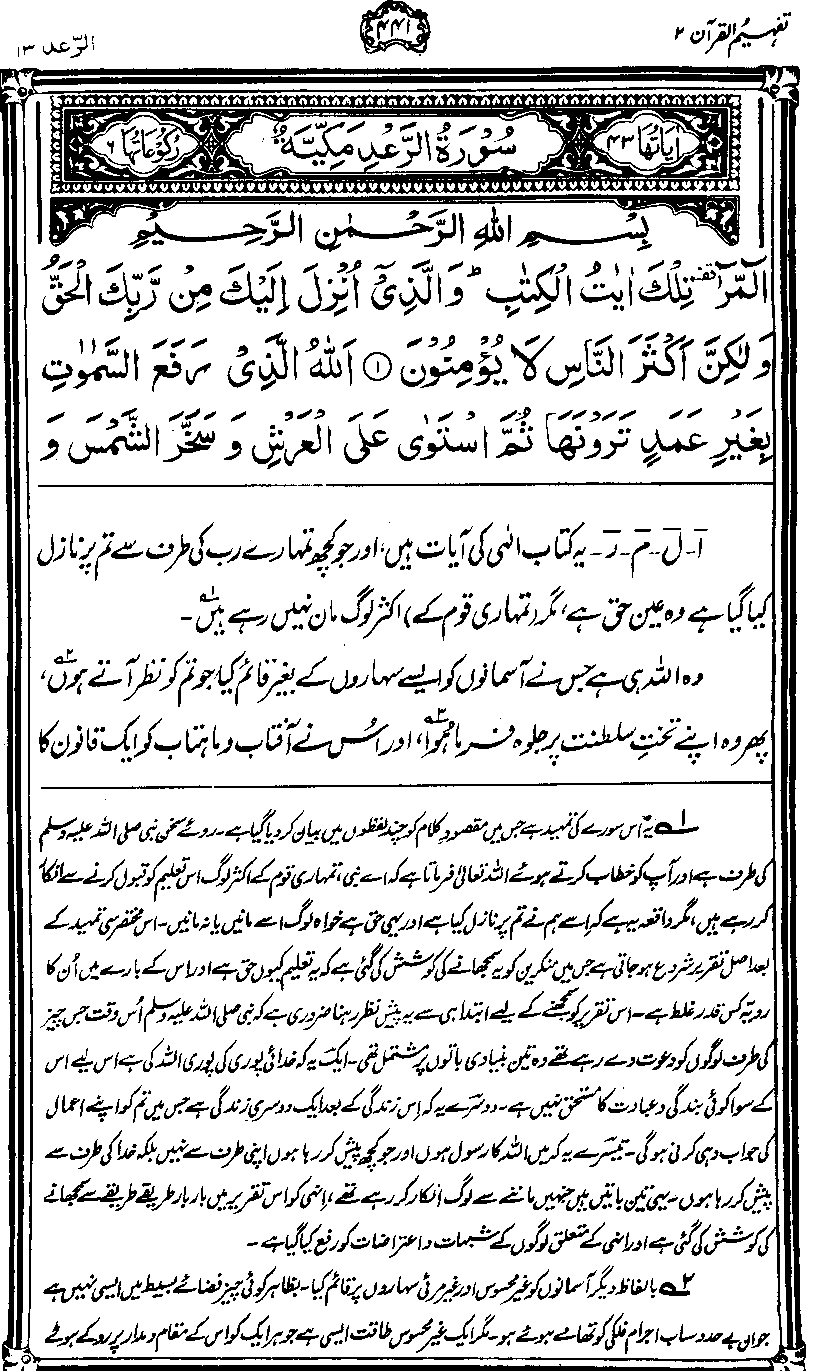 تفہیم القرآن ۲
۴۴۱
الرّعد ۱۳
اٰیَاتُهَا ۴۳
سُوْرَةُ الرَّعْدِ مَكِّيَّةٌ
رُكُوْعَاتُهَا ۶
بِسْمِ اللهِ الرَّحْمٰنِ الرَّحِيْمِ
الٓمّٓرٰ ۫ تِلْكَ اٰيٰتُ الْكِتٰبِ ؕ وَالَّذِيْۤ اُنْزِلَ اِلَيْكَ مِنْ رَّبِّكَ الْحَقُّ
وَلٰكِنَّ اَكْثَرَ النَّاسِ لَا يُؤْمِنُوْنَ ۱ اَللهُ الَّذِيْ رَفَعَ السَّمٰوٰتِ
بِغَيْرِ عَمَدٍ تَرَوْنَهَا ثُمَّ اسْتَوٰى عَلَى الْعَرْشِ وَ سَخَّرَ الشَّمْسَ وَ
ا۔ ل۔ م۔ ر۔ یہ کتاب الٰہی کی آیات ہیں، اور جو کچھ تمہارے رب کی طرف سے تم پر نازل
کیا گیا ہے وہ عین حق ہے، مگر (تمہاری قوم کے) اکثر لوگ مان نہیں رہے ہیں۱۔
وہ اللہ ہی ہے جس نے آسمانوں کو ایسے سہاروں کے بغیر قائم کیا جو تم کو نظر آتے ہوں۲،
پھر وہ اپنے تختِ سلطنت پر جلوہ فرما ہوا۳، اور اُس نے آفتاب و ماہتاب کو ایک قانون کا
۱ یہ اس سورے کی تمہید ہے جس میں مقصودِ کلام کو چند لفظوں میں بیان کر دیا گیا ہے۔ روئے سخن نبی صلی اللہ علیہ وسلم
کی طرف ہے اور آپ کو خطاب کرتے ہوئے اللہ تعالیٰ فرماتا ہے کہ اے نبی، تمہاری قوم کے اکثر لوگ اس تعلیم کو قبول کرنے سے انکار
کر رہے ہیں، مگر واقعہ یہ ہے کہ اسے ہم نے تم پر نازل کیا ہے اور یہی حق ہے خواہ لوگ اسے مانیں یا نہ مانیں۔ اس مختصر سی تمہید کے
بعد اصل تقریر شروع ہو جاتی ہے جس میں منکرین کو یہ سمجھانے کی کوشش کی گئی ہے کہ یہ تعلیم کیوں حق ہے اور اس کے بارے میں اُن کا
رویّہ کس قدر غلط ہے۔ اس تقریر کو سمجھنے کے لیے ابتدا ہی سے یہ پیش نظر رہنا ضروری ہے کہ نبی صلی اللہ علیہ وسلم اُس وقت جس چیز
کی طرف لوگوں کو دعوت دے رہے تھے وہ تین بنیادی باتوں پر مشتمل تھی۔ ایک یہ کہ خدائی پوری کی پوری اللہ کی ہے اس لیے اس
کے سوا کوئی بندگی و عبادت کا مستحق نہیں ہے۔ دوسرے یہ کہ اِس زندگی کے بعد ایک دوسری زندگی ہے جس میں تم کو اپنے اعمال
کی جواب دہی کرنی ہوگی۔ تیسرے یہ کہ میں اللہ کا رسول ہوں اور جو کچھ پیش کر رہا ہوں اپنی طرف سے نہیں بلکہ خدا کی طرف سے
پیش کر رہا ہوں۔ یہی تین باتیں ہیں جنہیں ماننے سے لوگ انکار کر رہے تھے، انہی کو اس تقریر میں بار بار طریقے طریقے سے سمجھانے
کی کوشش کی گئی ہے اور انہی کے متعلق لوگوں کے شبہات و اعتراضات کو رفع کیا گیا ہے۔
۲ بالفاظ دیگر آسمانوں کو غیر محسوس اور غیر مرئی سہاروں پر قائم کیا۔ بظاہر کوئی چیز فضائے بسیط میں ایسی نہیں ہے
جو ان بے حد و حساب اجرام فلکی کو تھامے ہوئے ہو۔ مگر ایک غیر محسوس طاقت ایسی ہے جو ہر ایک کو اس کے مقام و مدار پر روکے ہوئے